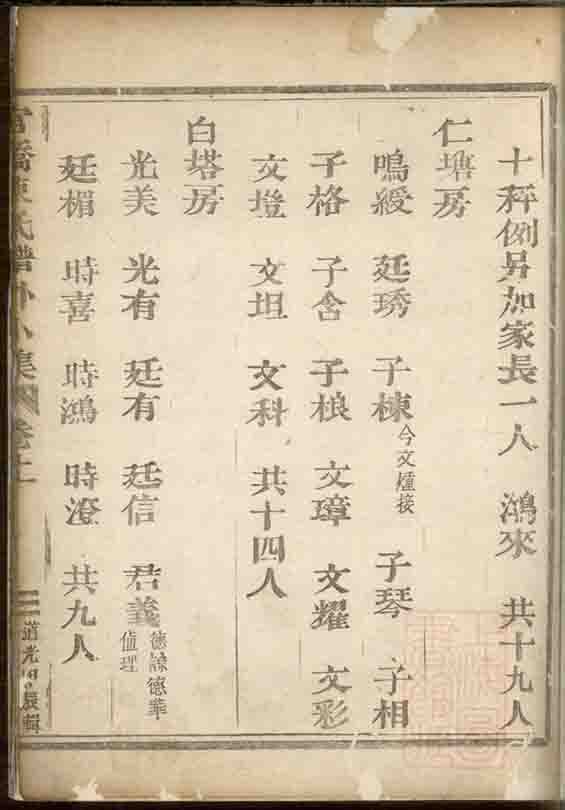 十秤例另加家長一人 鴻來 共十九人
仁塘房
鳴緩 廷琇 子棟今文煄接 子琴 子相
子格 子含 子桹 文璋 文耀 文彩
文燈 文坦 文科 共十四人
白塔房
光美 光有 廷有 廷信 君義德諒德華值理
廷楣 時喜 時鴻 時澄 共九人
橋陳氏譜外小集 卷上
道光 辰輯